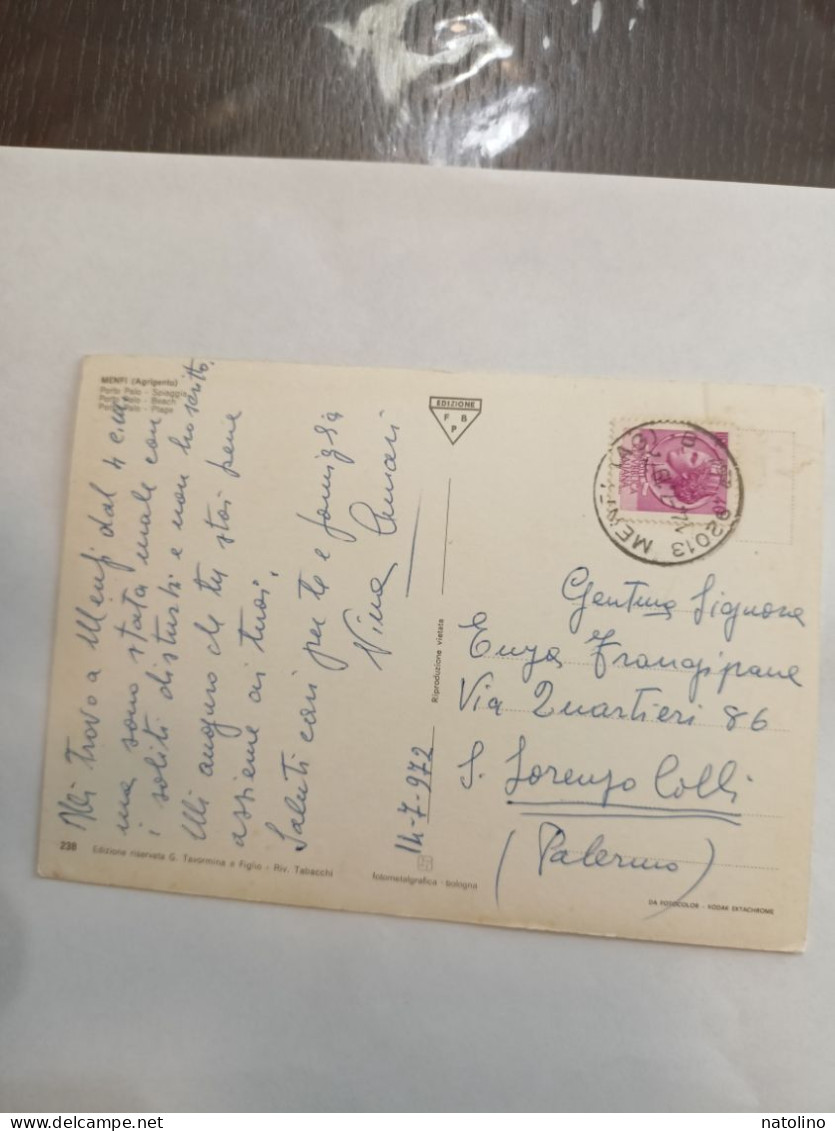 MENFI (Agrigento)
Porto Palo - Spiaggia
Porto Palo - Beach
Porto Palo - Plage
Mi trovo a Menfi dal 4 c.m.
ma sono stata male con
i soliti disturbi e non ho scritto.
Mi auguro che tu stai bene
assieme ai tuoi.
Saluti cari per te e famiglia
Nina
14-7-972
238
Edizione riservata G. Tavormina e Figlio - Riv. Tabacchi
fotometalgrafica - bologna
Riproduzione vietata
EDIZIONE
F B
P
92013 MENFI (AG)
Gent.ma Signora
Enza Frangipane
Via Quartieri 86
S. Lorenzo Colli
(Palermo)
DA FOTOCOLOR - KODAK EKTACHROME
www.delcampe.net
natolino